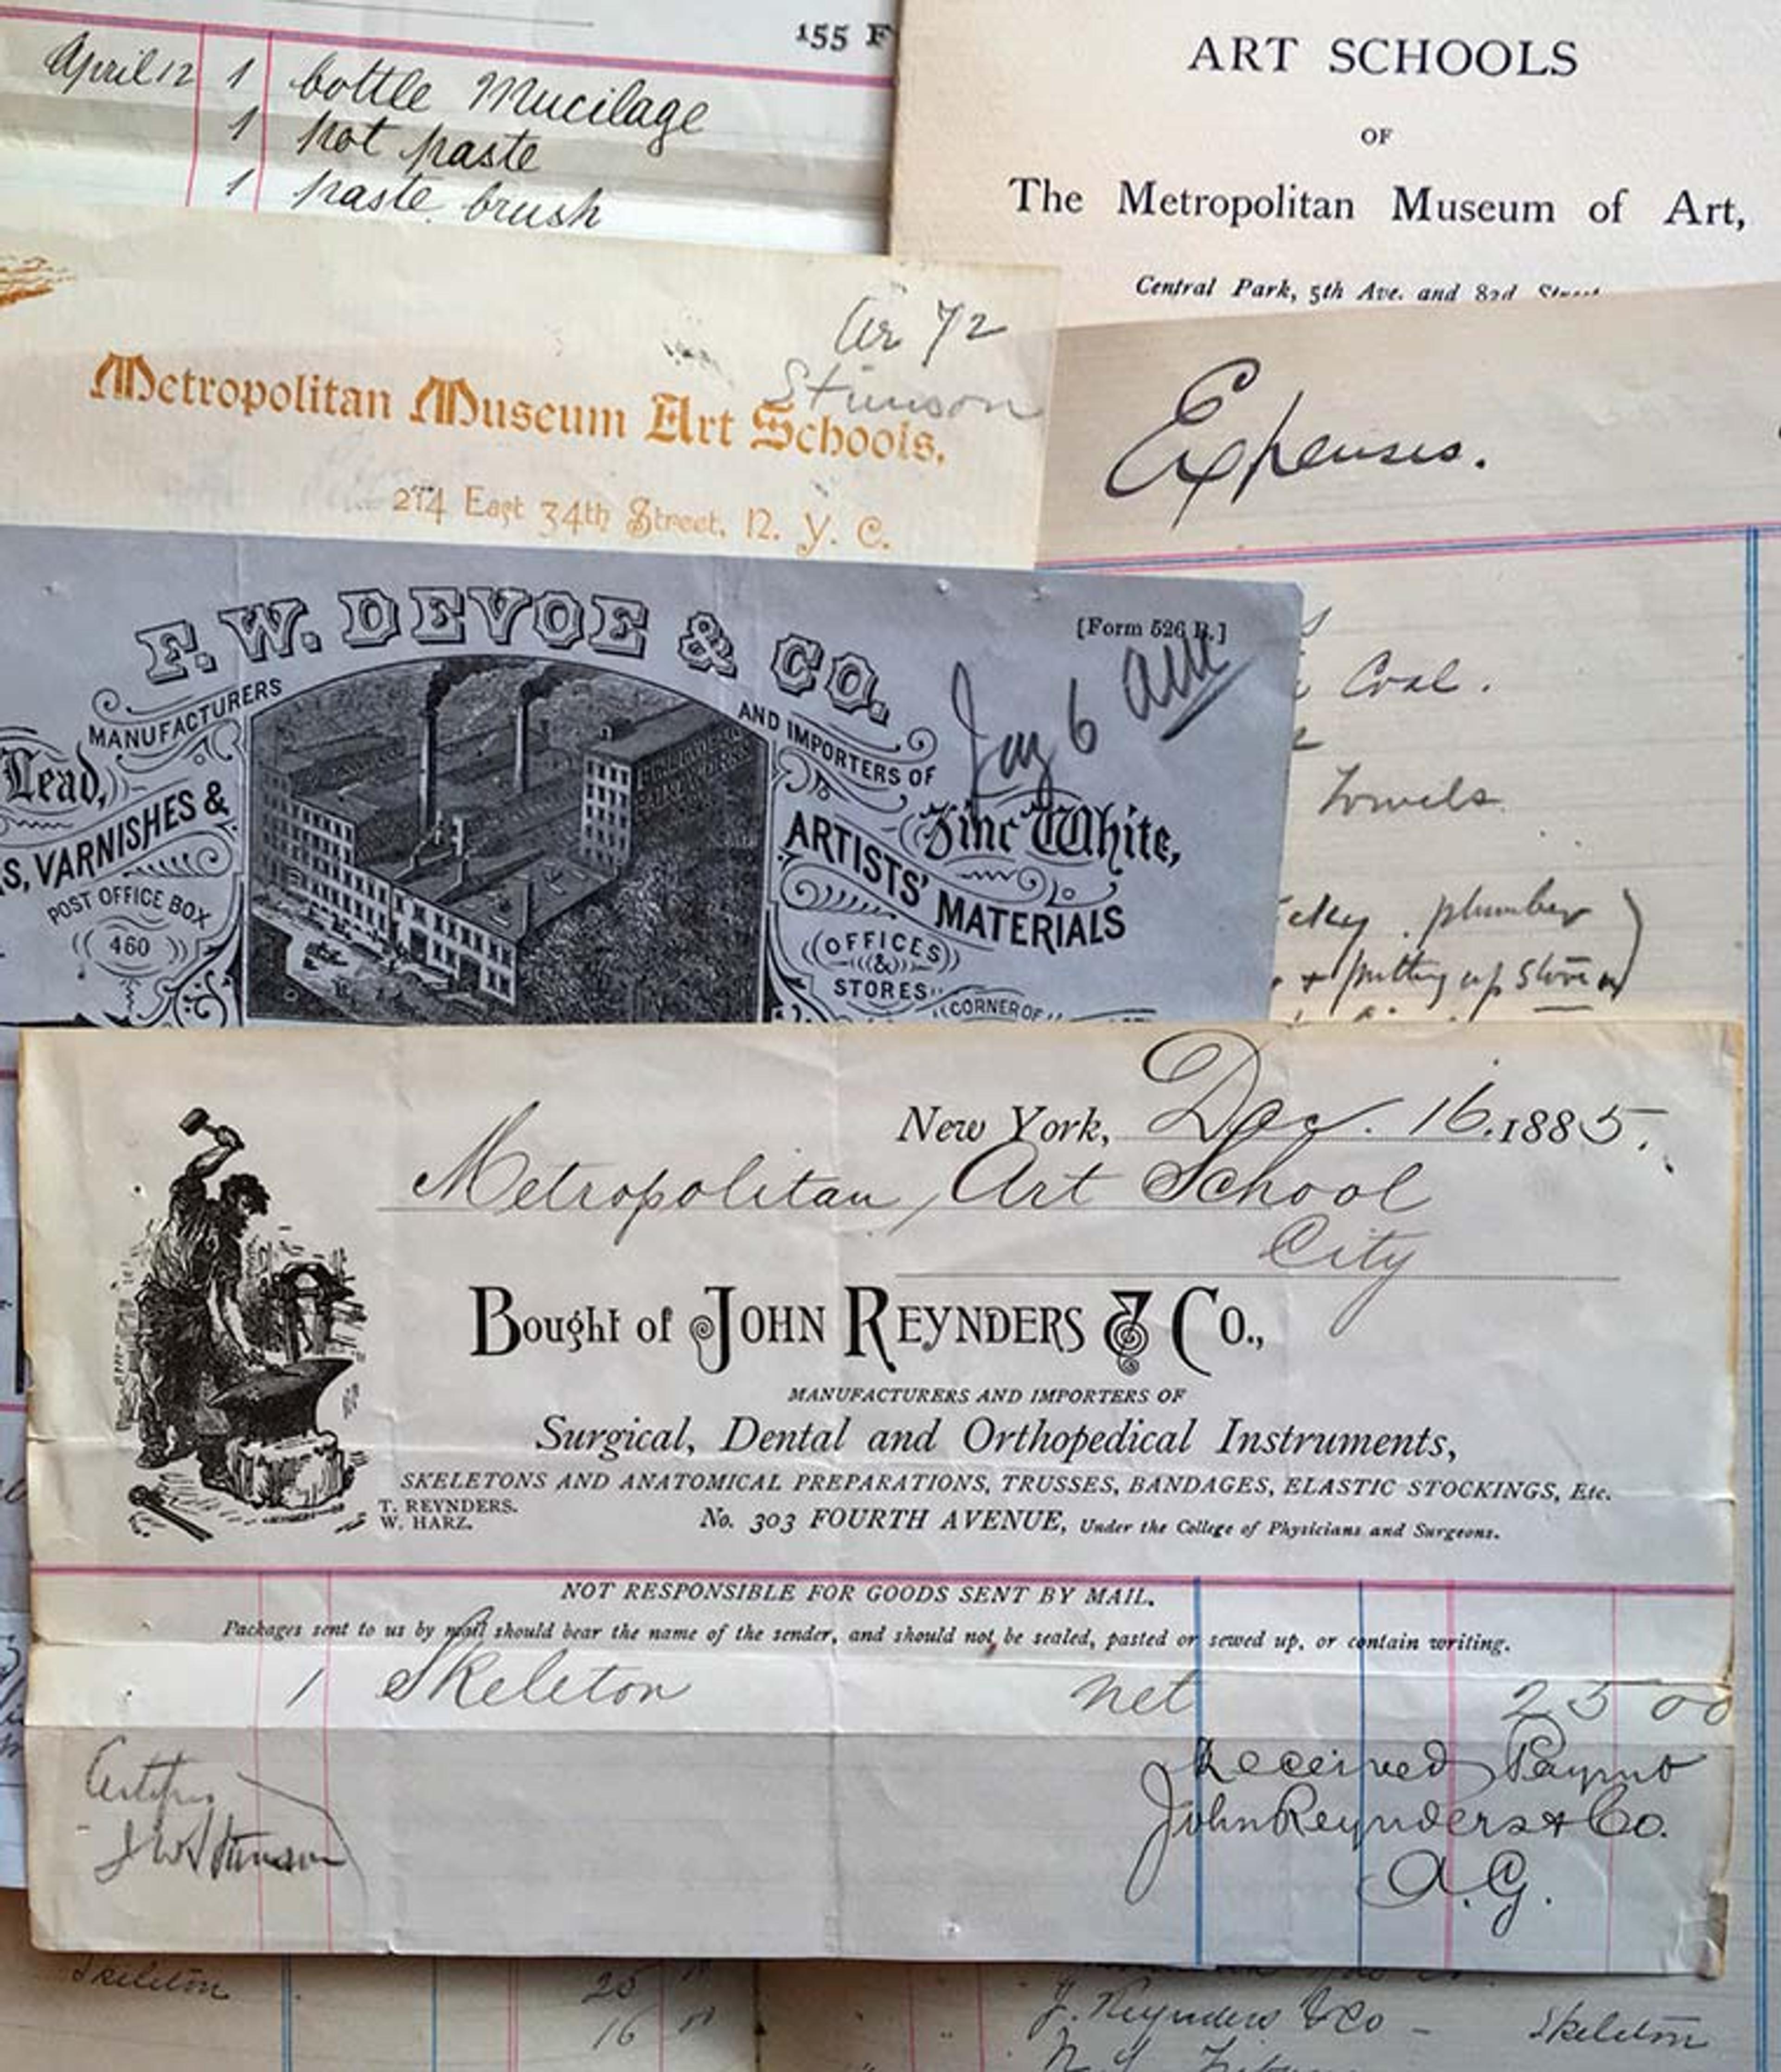 155 F
April 12 1 bottle Mucilage
1 pot paste
1 paste brush
ART SCHOOLS
OF
The Metropolitan Museum of Art,
Central Park, 5th Ave. and 82d Street
72
Stimson
Metropolitan Museum Art Schools,
214 East 34th Street, N. Y. C.
Expenses.
Coal.
Towels
plumber
& putting up Stove
F. W. DEVOE & CO.
[Form 526 B.]
MANUFACTURERS
AND IMPORTERS OF
Lead,
Zinc White,
S, VARNISHES &
ARTISTS' MATERIALS
POST OFFICE BOX
460
OFFICES
&
STORES
CORNER OF
New York, Dec. 16. 1885.
Metropolitan Art School
City
Bought of JOHN REYNDERS & CO.,
MANUFACTURERS AND IMPORTERS OF
Surgical, Dental and Orthopedical Instruments,
SKELETONS AND ANATOMICAL PREPARATIONS, TRUSSES, BANDAGES, ELASTIC STOCKINGS, Etc.
T. REYNDERS.
W. HARZ.
No. 303 FOURTH AVENUE, Under the College of Physicians and Surgeons.
NOT RESPONSIBLE FOR GOODS SENT BY MAIL.
Packages sent to us by mail should bear the name of the sender, and should not be sealed, pasted or sewed up, or contain writing.
1 Skeleton net 25 00
Received Paymt
John Reynders & Co.
A. G.
J W Stimson
Skeleton 25
16
J. Reynders & Co - Skeleton